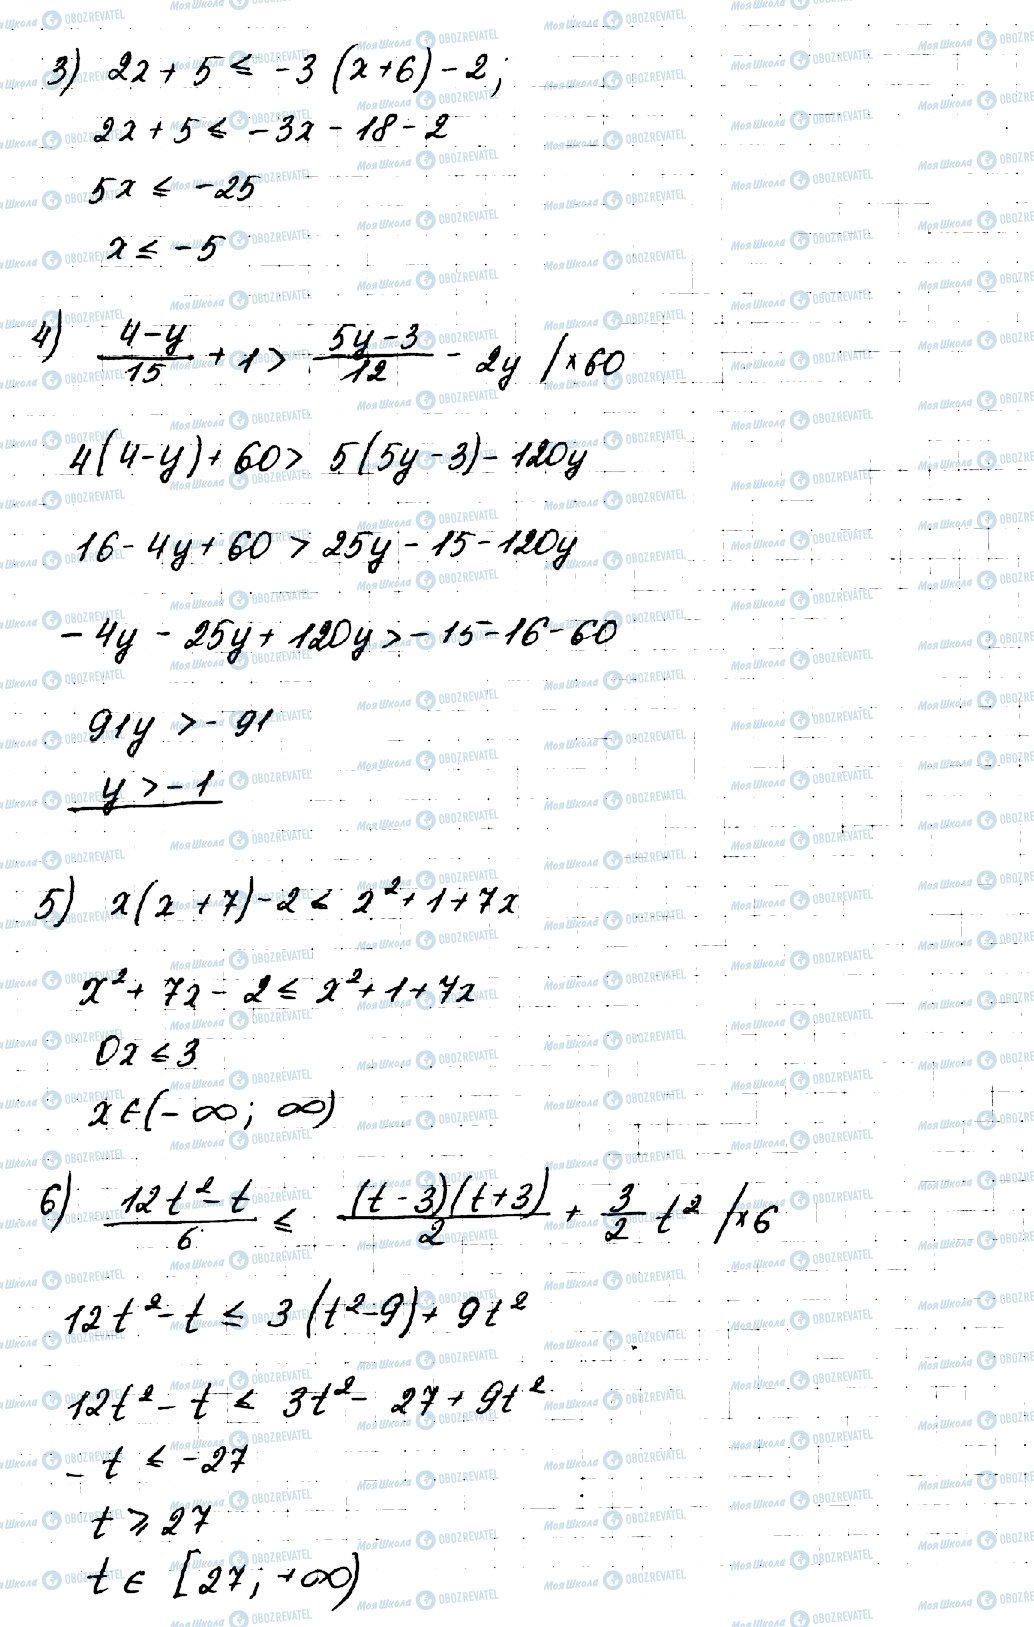 3) 2x + 5 ≤ -3 (x+6) - 2;
2x + 5 ≤ -3x - 18 - 2
5x ≤ -25
x ≤ -5
4) (4-y)/15 + 1 > (5y-3)/12 - 2y /×60
4(4-y) + 60 > 5(5y-3) - 120y
16 - 4y + 60 > 25y - 15 - 120y
-4y - 25y + 120y > -15 - 16 - 60
91y > -91
y > -1
5) x(x+7) - 2 ≤ x² + 1 + 7x
x² + 7x - 2 ≤ x² + 1 + 7x
0x ≤ 3
x ∈ (-∞; ∞)
6) (12t² - t)/6 ≤ (t-3)(t+3)/2 + 3/2 t² /×6
12t² - t ≤ 3(t²-9) + 9t²
12t² - t ≤ 3t² - 27 + 9t²
-t ≤ -27
t ≥ 27
t ∈ [27; +∞)
Моя Школа OBOZREVATEL